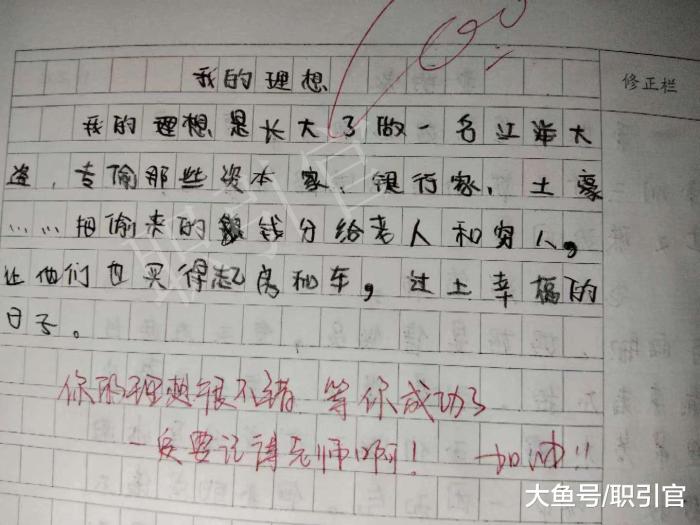 100
我的理想
修正栏
我的理想是长大了做一名江洋大
盗，专偷那些资本家、银行家、土豪
……把偷来的银钱分给老人和穷人，
让他们也买得起房和车，过上幸福的
日子。
你的理想很不错 等你成功了
一定要记得老师啊！ 加油!!
职引官
大鱼号/职引官